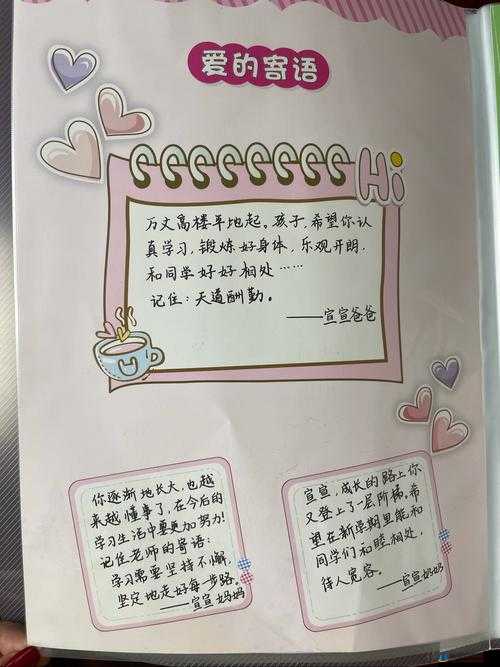 爱的寄语
Hi
万丈高楼平地起。孩子,希望你认
真学习,锻炼好身体,乐观开朗,
和同学好好相处……
记住:天道酬勤。
——宣宣爸爸
你逐渐地长大,也越
来越懂事了,在今后的
学习生活中要更加努力!
记住老师的寄语:
学习需要坚持不懈,
坚定地走好每一步路。
——宣宣妈妈
宣宣,成长的路上你
又登上了一层阶梯。希
望在新学期里能和
同学们和睦相处,
待人宽容。
——宣宣奶奶